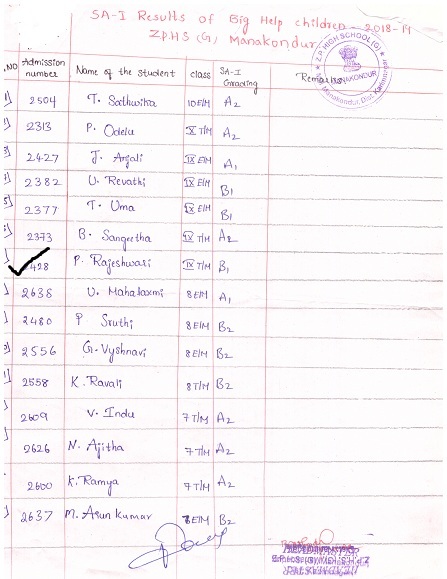 SA-I Results of Big Help children - 2018-19
Z.P.HS (G), Manakondur
S.NO Admission number Name of the student class SA-I Grading Remarks
2504 T. Sathwika 10 E/M A2
2313 P. Odelu IX T/M A2
2427 J. Anjali IX E/M A1
2382 U. Revathi IX E/M B1
2377 T. Uma IX E/M B1
2373 B. Sangeetha IX T/M A2
2428 P. Rajeshwari IX T/M B1
2638 U. Mahalaxmi 8 E/M A1
2480 P Sruthi 8 E/M B2
2556 G. Vyshnavi 8 E/M B2
2558 K. Ravali 8 T/M B2
2609 V. Indu 7 T/M A2
2626 N. Ajitha 7 T/M A2
2600 K. Ramya 7 T/M A2
2637 M. Arun Kumar 8 E/M B2
Z.P. HIGH SCHOOL (G)
MANAKONDUR